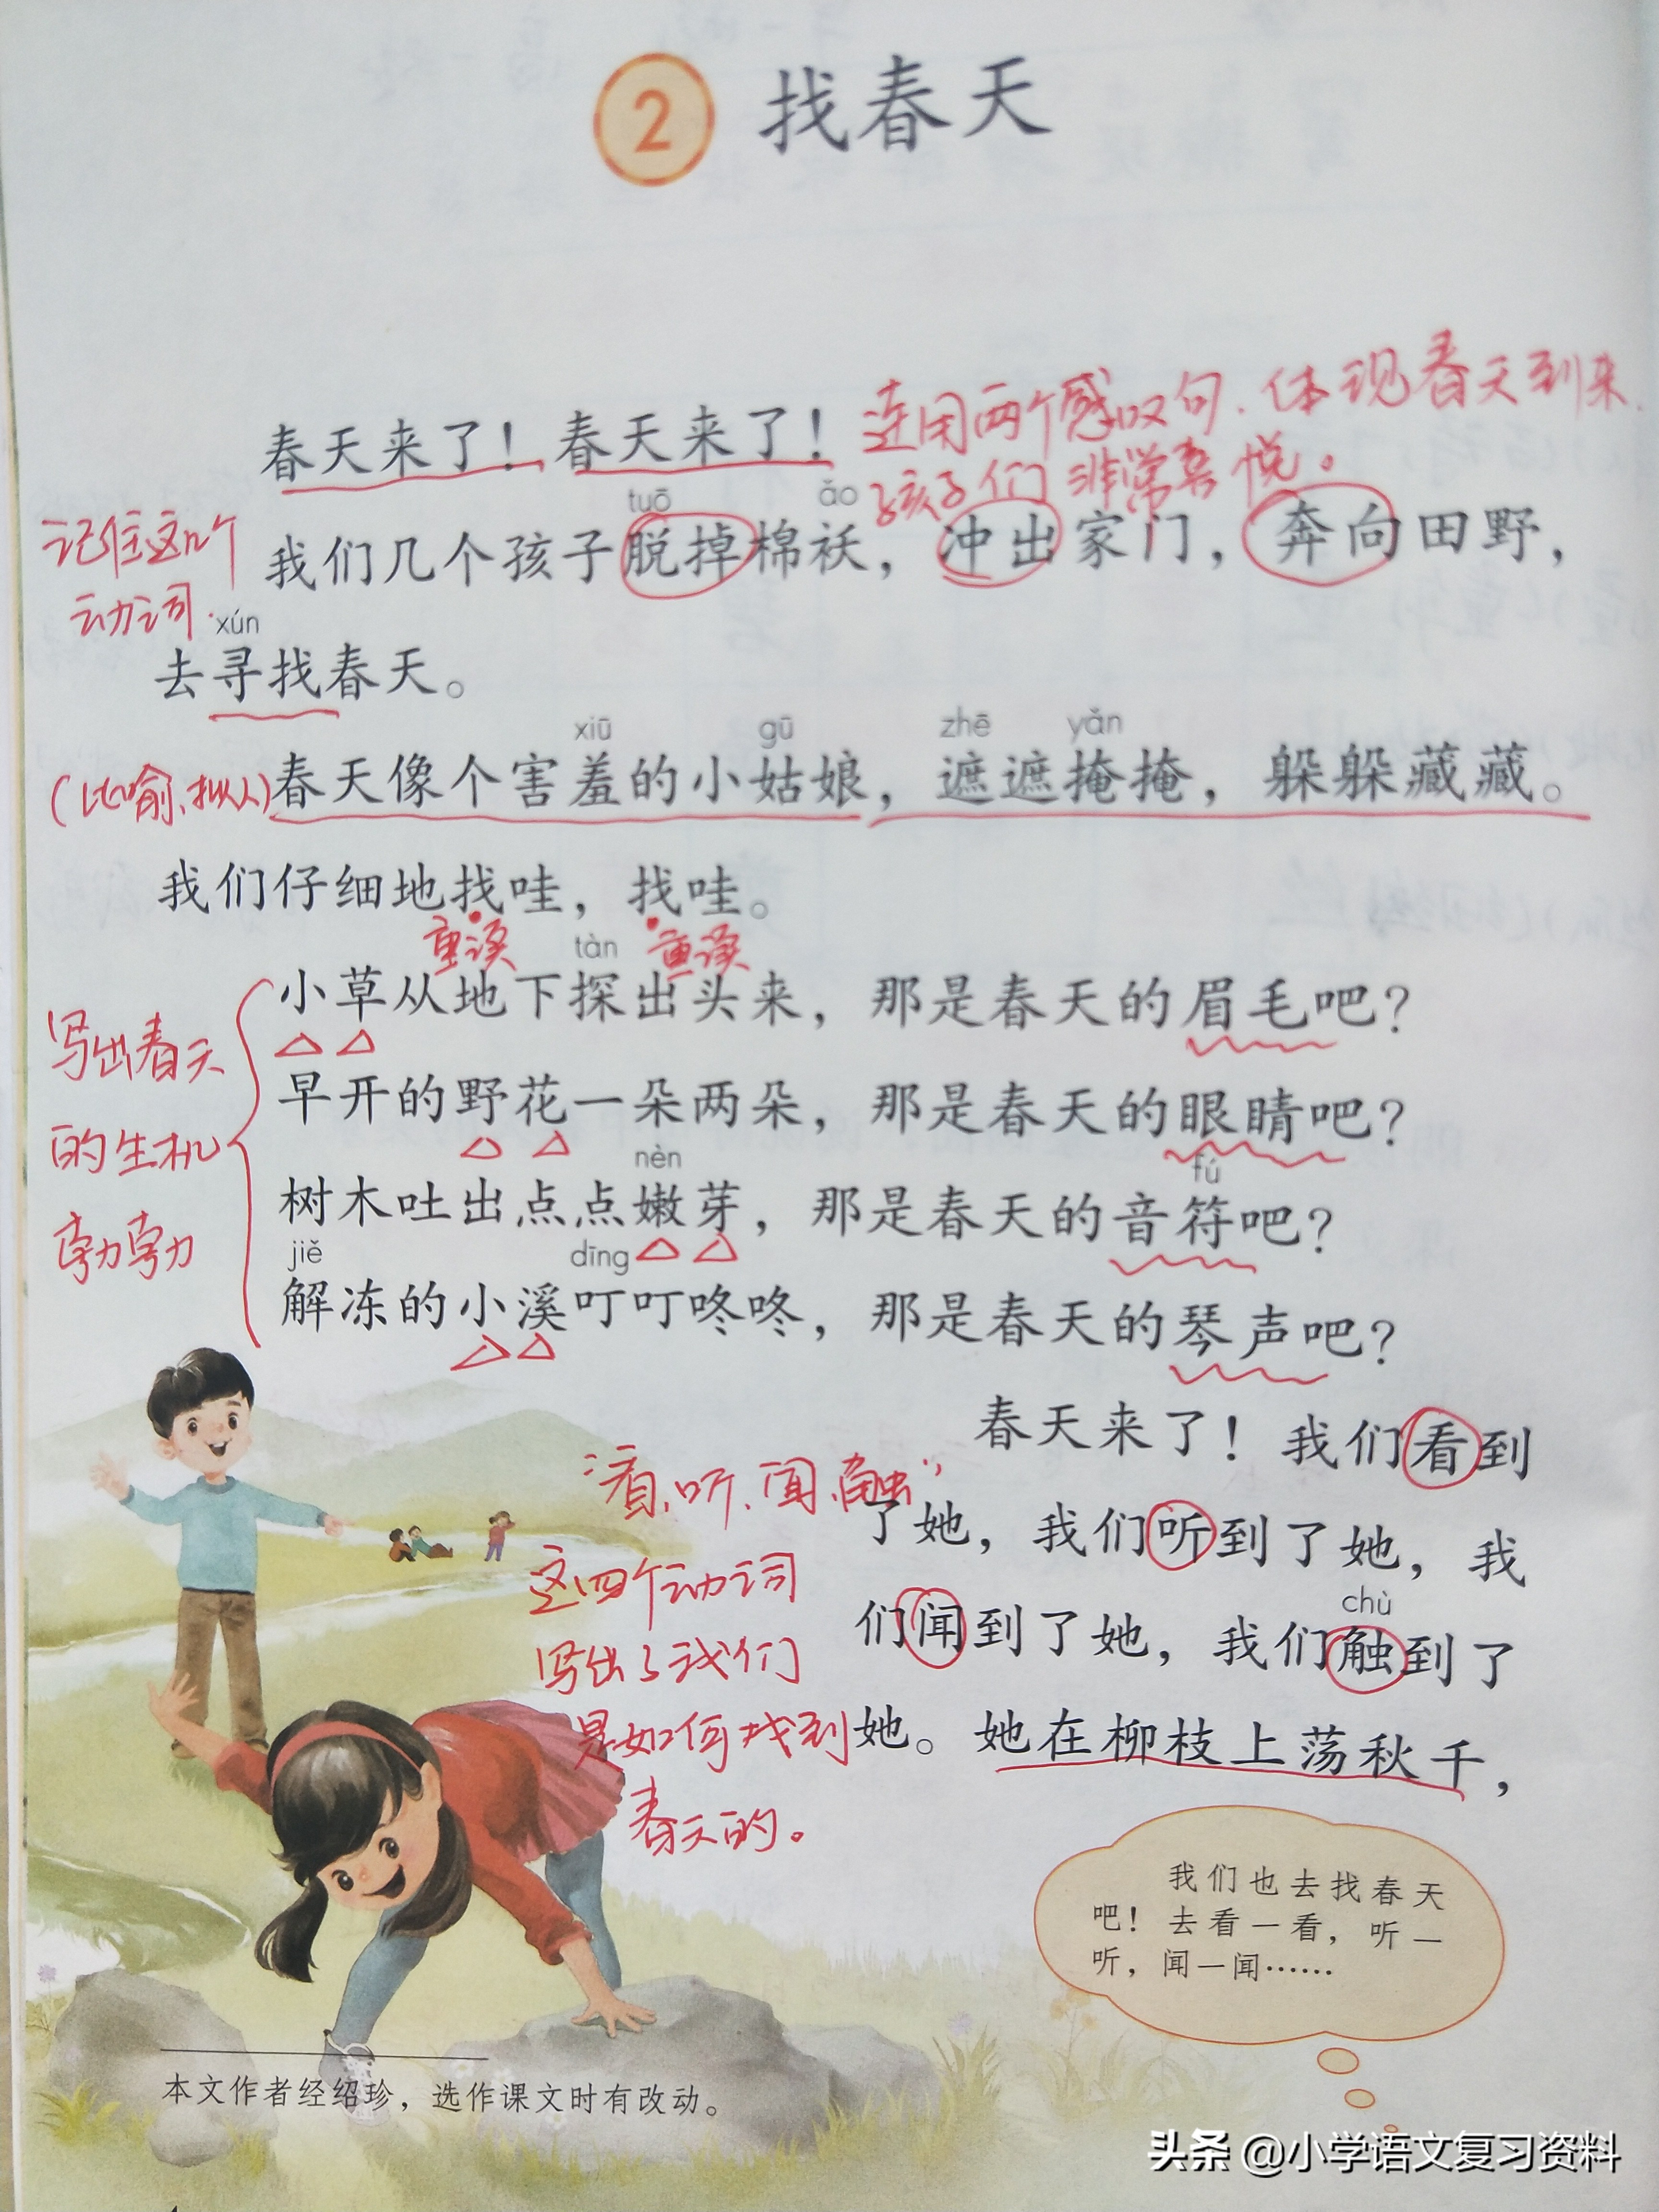 2 找春天
春天来了！春天来了！
连用两个感叹句、体现春天到来，
孩子们非常喜悦。
tuō ǎo
我们几个孩子脱掉棉袄，冲出家门，奔向田野，
记住这几个
动词.
xún
去寻找春天。
xiū gū zhē yǎn
(比喻、拟人)
春天像个害羞的小姑娘，遮遮掩掩，躲躲藏藏。
我们仔细地找哇，找哇。
重读 重读
tàn
小草从地下探出头来，那是春天的眉毛吧？
早开的野花一朵两朵，那是春天的眼睛吧？
nèn fú
树木吐出点点嫩芽，那是春天的音符吧？
jiě dīng
解冻的小溪叮叮咚咚，那是春天的琴声吧？
写出春天
的生机
勃勃
春天来了！我们看到
了她，我们听到了她，我
chù
们闻到了她，我们触到了
她。她在柳枝上荡秋千，
“看、听、闻、触”
这四个动词
写出了我们
是如何找到
春天的。
我们也去找春天
吧！去看一看，听一
听，闻一闻……
本文作者经绍珍，选作课文时有改动。
头条 @小学语文复习资料